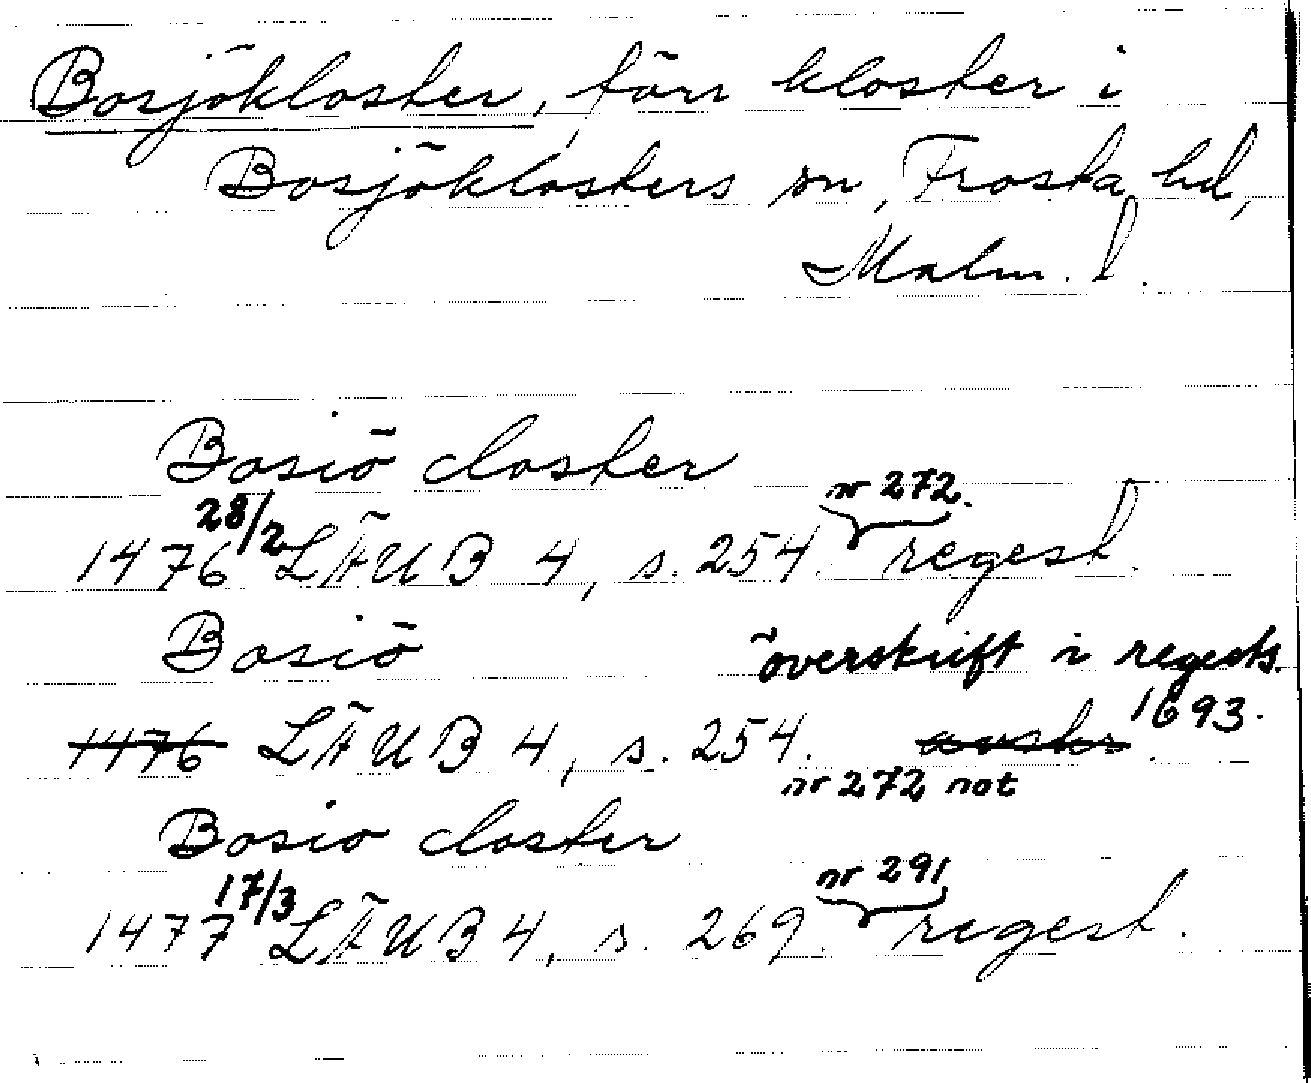 Bosjökloster, förr kloster i
Bosjöklosters sn, Frosta hd,
Malm. l.
Bosiö closter
nr 272.
1476 28/2 LÄUB 4, s. 254. regest.
Bosiö överskrift i regests.
1693.
1476 LÄUB 4, s. 254. avskr.
nr 272 not
Bosio closter
nr 291
1477 17/3 LÄUB 4, s. 269. regest.